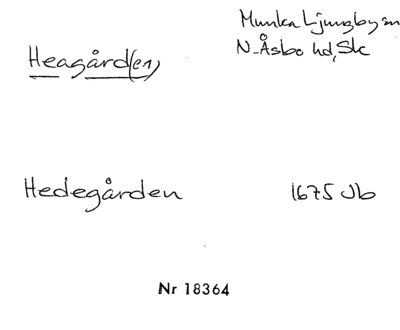 Munka Ljungby sn
Heagård(en)
N. Åsbo hd, Sk
Hedegården 1675 Jb
Nr 18364